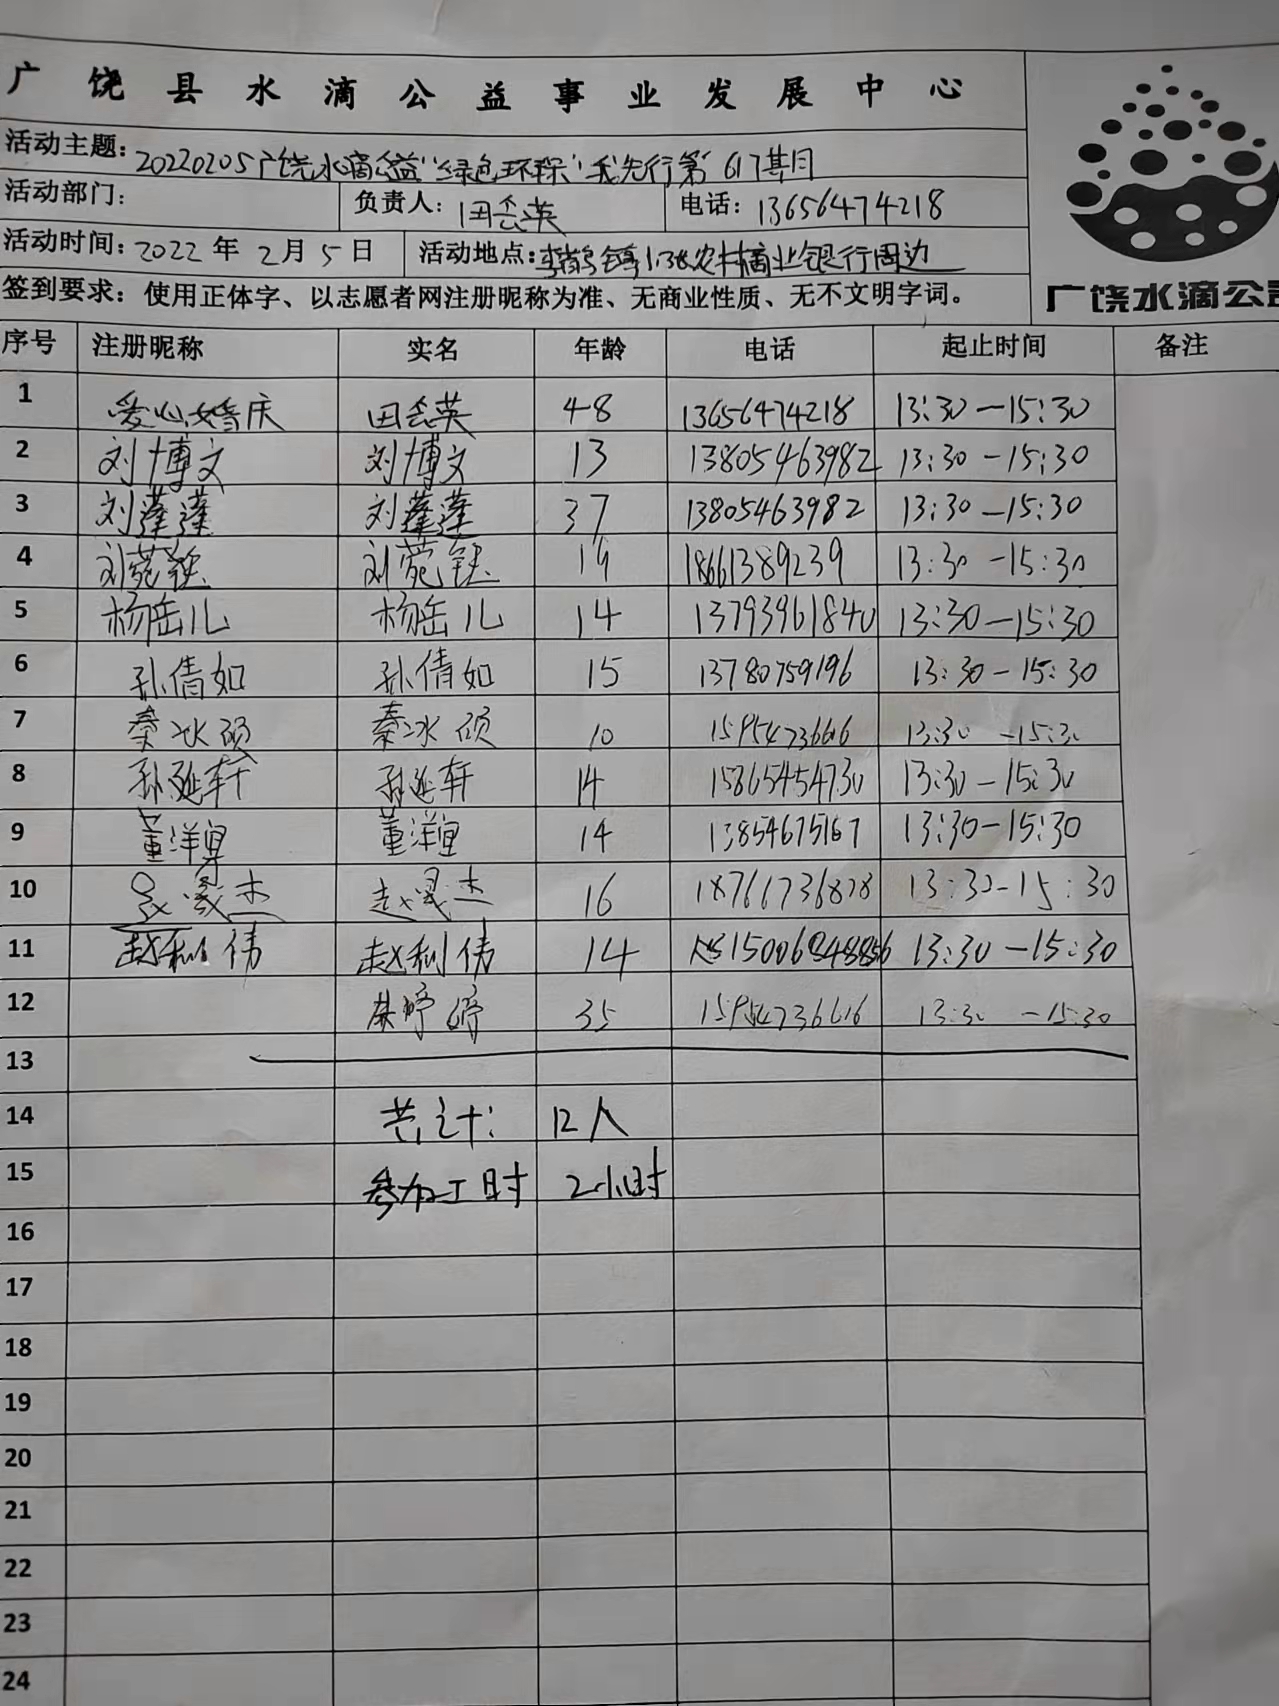 广饶县水滴公益事业发展中心
活动主题：20220205广饶水滴公益“绿色环保”我先行第617期
活动部门： 负责人：田会英 电话：13656474218
活动时间：2022年2月5日 活动地点：李鹊镇 农村商业银行周边
签到要求：使用正体字、以志愿者网注册昵称为准、无商业性质、无不文明字词。
广饶水滴公益
序号 注册昵称 实名 年龄 电话 起止时间 备注
1 爱心婚庆 田会英 48 13656474218 13:30—15:30
2 刘博文 刘博文 13 13805463982 13:30—15:30
3 刘蓬蓬 刘蓬蓬 37 13805463982 13:30—15:30
4 刘菀 刘菀 18661389239 13:30—15:30
5 杨岳儿 杨岳儿 14 13793961840 13:30—15:30
6 孙倩如 孙倩如 15 13780759196 13:30—15:30
7 秦冰硕 秦冰硕 10 15954736616 13:30—15:30
8 孙延轩 孙延轩 14 15865454730 13:30—15:30
9 董洋宜 董洋宜 14 13854675167 13:30—15:30
10 赵 杰 16 18766736828 13:30—15:30
11 赵利伟 赵利伟 14 13:30—15:30
12 35 15954736616 13:30—15:30
13
14 共计： 12人
15 参加工时 2小时
16
17
18
19
20
21
22
23
24